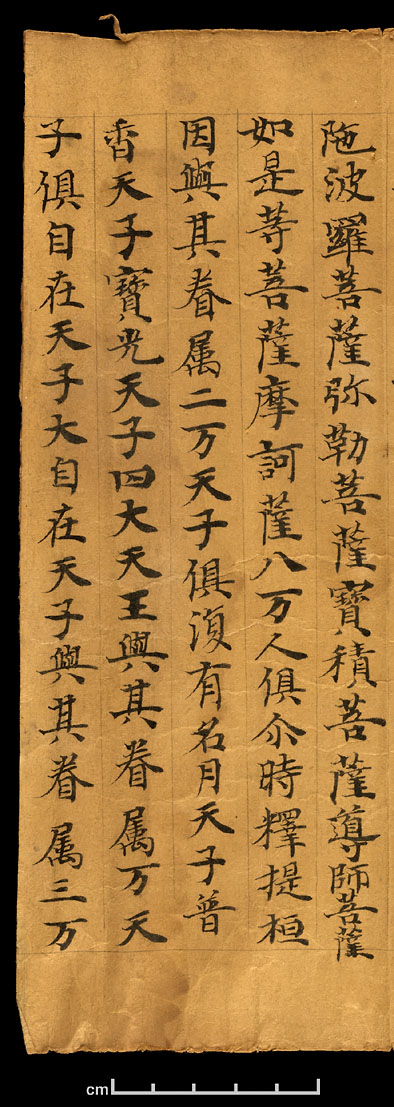 陁波羅菩薩弥勒菩薩寶積菩薩導師菩薩
如是等菩薩摩訶薩八万人俱尒時釋提桓
因與其眷属二万天子俱復有名月天子普
香天子寶光天子四大天王與其眷属万天
子俱自在天子大自在天子與其眷属三万
cm